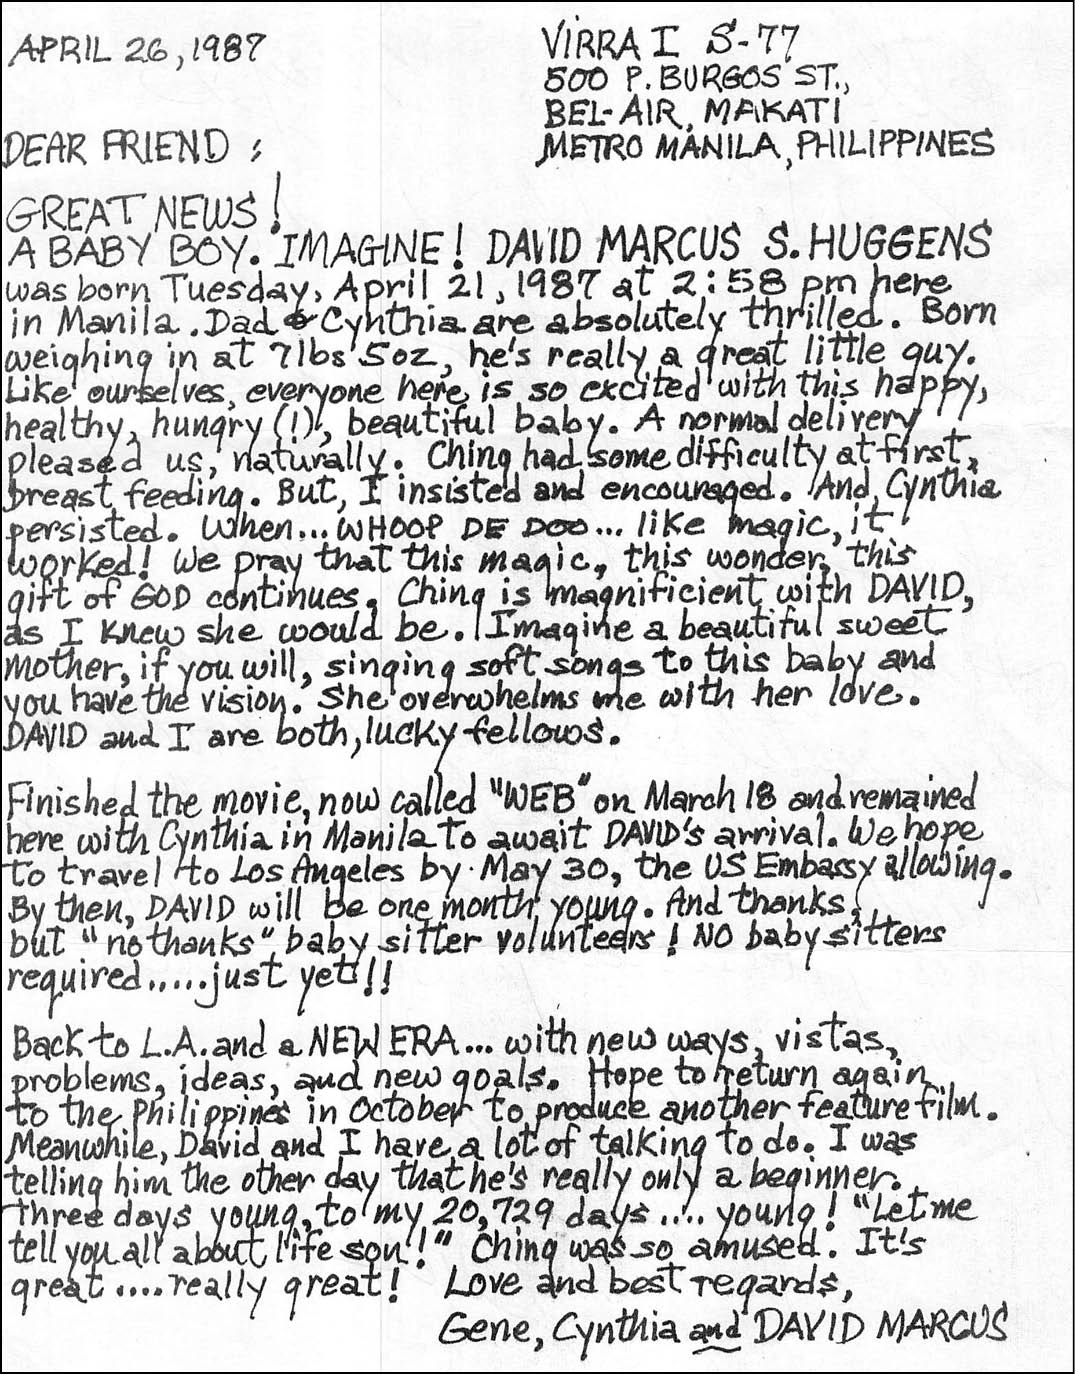 APRIL 26, 1987
VIRRA I S-77
500 P. BURGOS ST.,
BEL-AIR, MAKATI
METRO MANILA, PHILIPPINES
DEAR FRIEND :
GREAT NEWS!
A BABY BOY. IMAGINE! DAVID MARCUS S. HUGGENS
was born Tuesday, April 21, 1987 at 2:58 pm here
in Manila. Dad & Cynthia are absolutely thrilled. Born
weighing in at 7lbs 5oz, he's really a great little guy.
Like ourselves, everyone here is so excited with this happy,
healthy, hungry (!), beautiful baby. A normal delivery
pleased us, naturally. Ching had some difficulty at first,
breast feeding. But, I insisted and encouraged. And, Cynthia
persisted. When... WHOOP DE DOO... like magic, it
worked! We pray that this magic, this wonder, this
gift of GOD continues. Ching is magnificient with DAVID,
as I knew she would be. Imagine a beautiful sweet
mother, if you will, singing soft songs to this baby and
you have the vision. She overwhelms me with her love.
DAVID and I are both, lucky fellows.
Finished the movie, now called "WEB" on March 18 and remained
here with Cynthia in Manila to await DAVID's arrival. We hope
to travel to Los Angeles by May 30, the US Embassy allowing.
By then, DAVID will be one month young. And thanks,
but "no thanks" baby sitter volunteers! NO baby sitters
required.....just yet!!
Back to L.A. and a NEW ERA... with new ways, vistas,
problems, ideas, and new goals. Hope to return again
to the Philippines in October to produce another feature film.
Meanwhile, David and I have a lot of talking to do. I was
telling him the other day that he's really only a beginner.
three days young, to my 20,729 days..... young! "Let me
tell you all about life son!" Ching was so amused. It's
great....really great! Love and best regards,
Gene, Cynthia and DAVID MARCUS